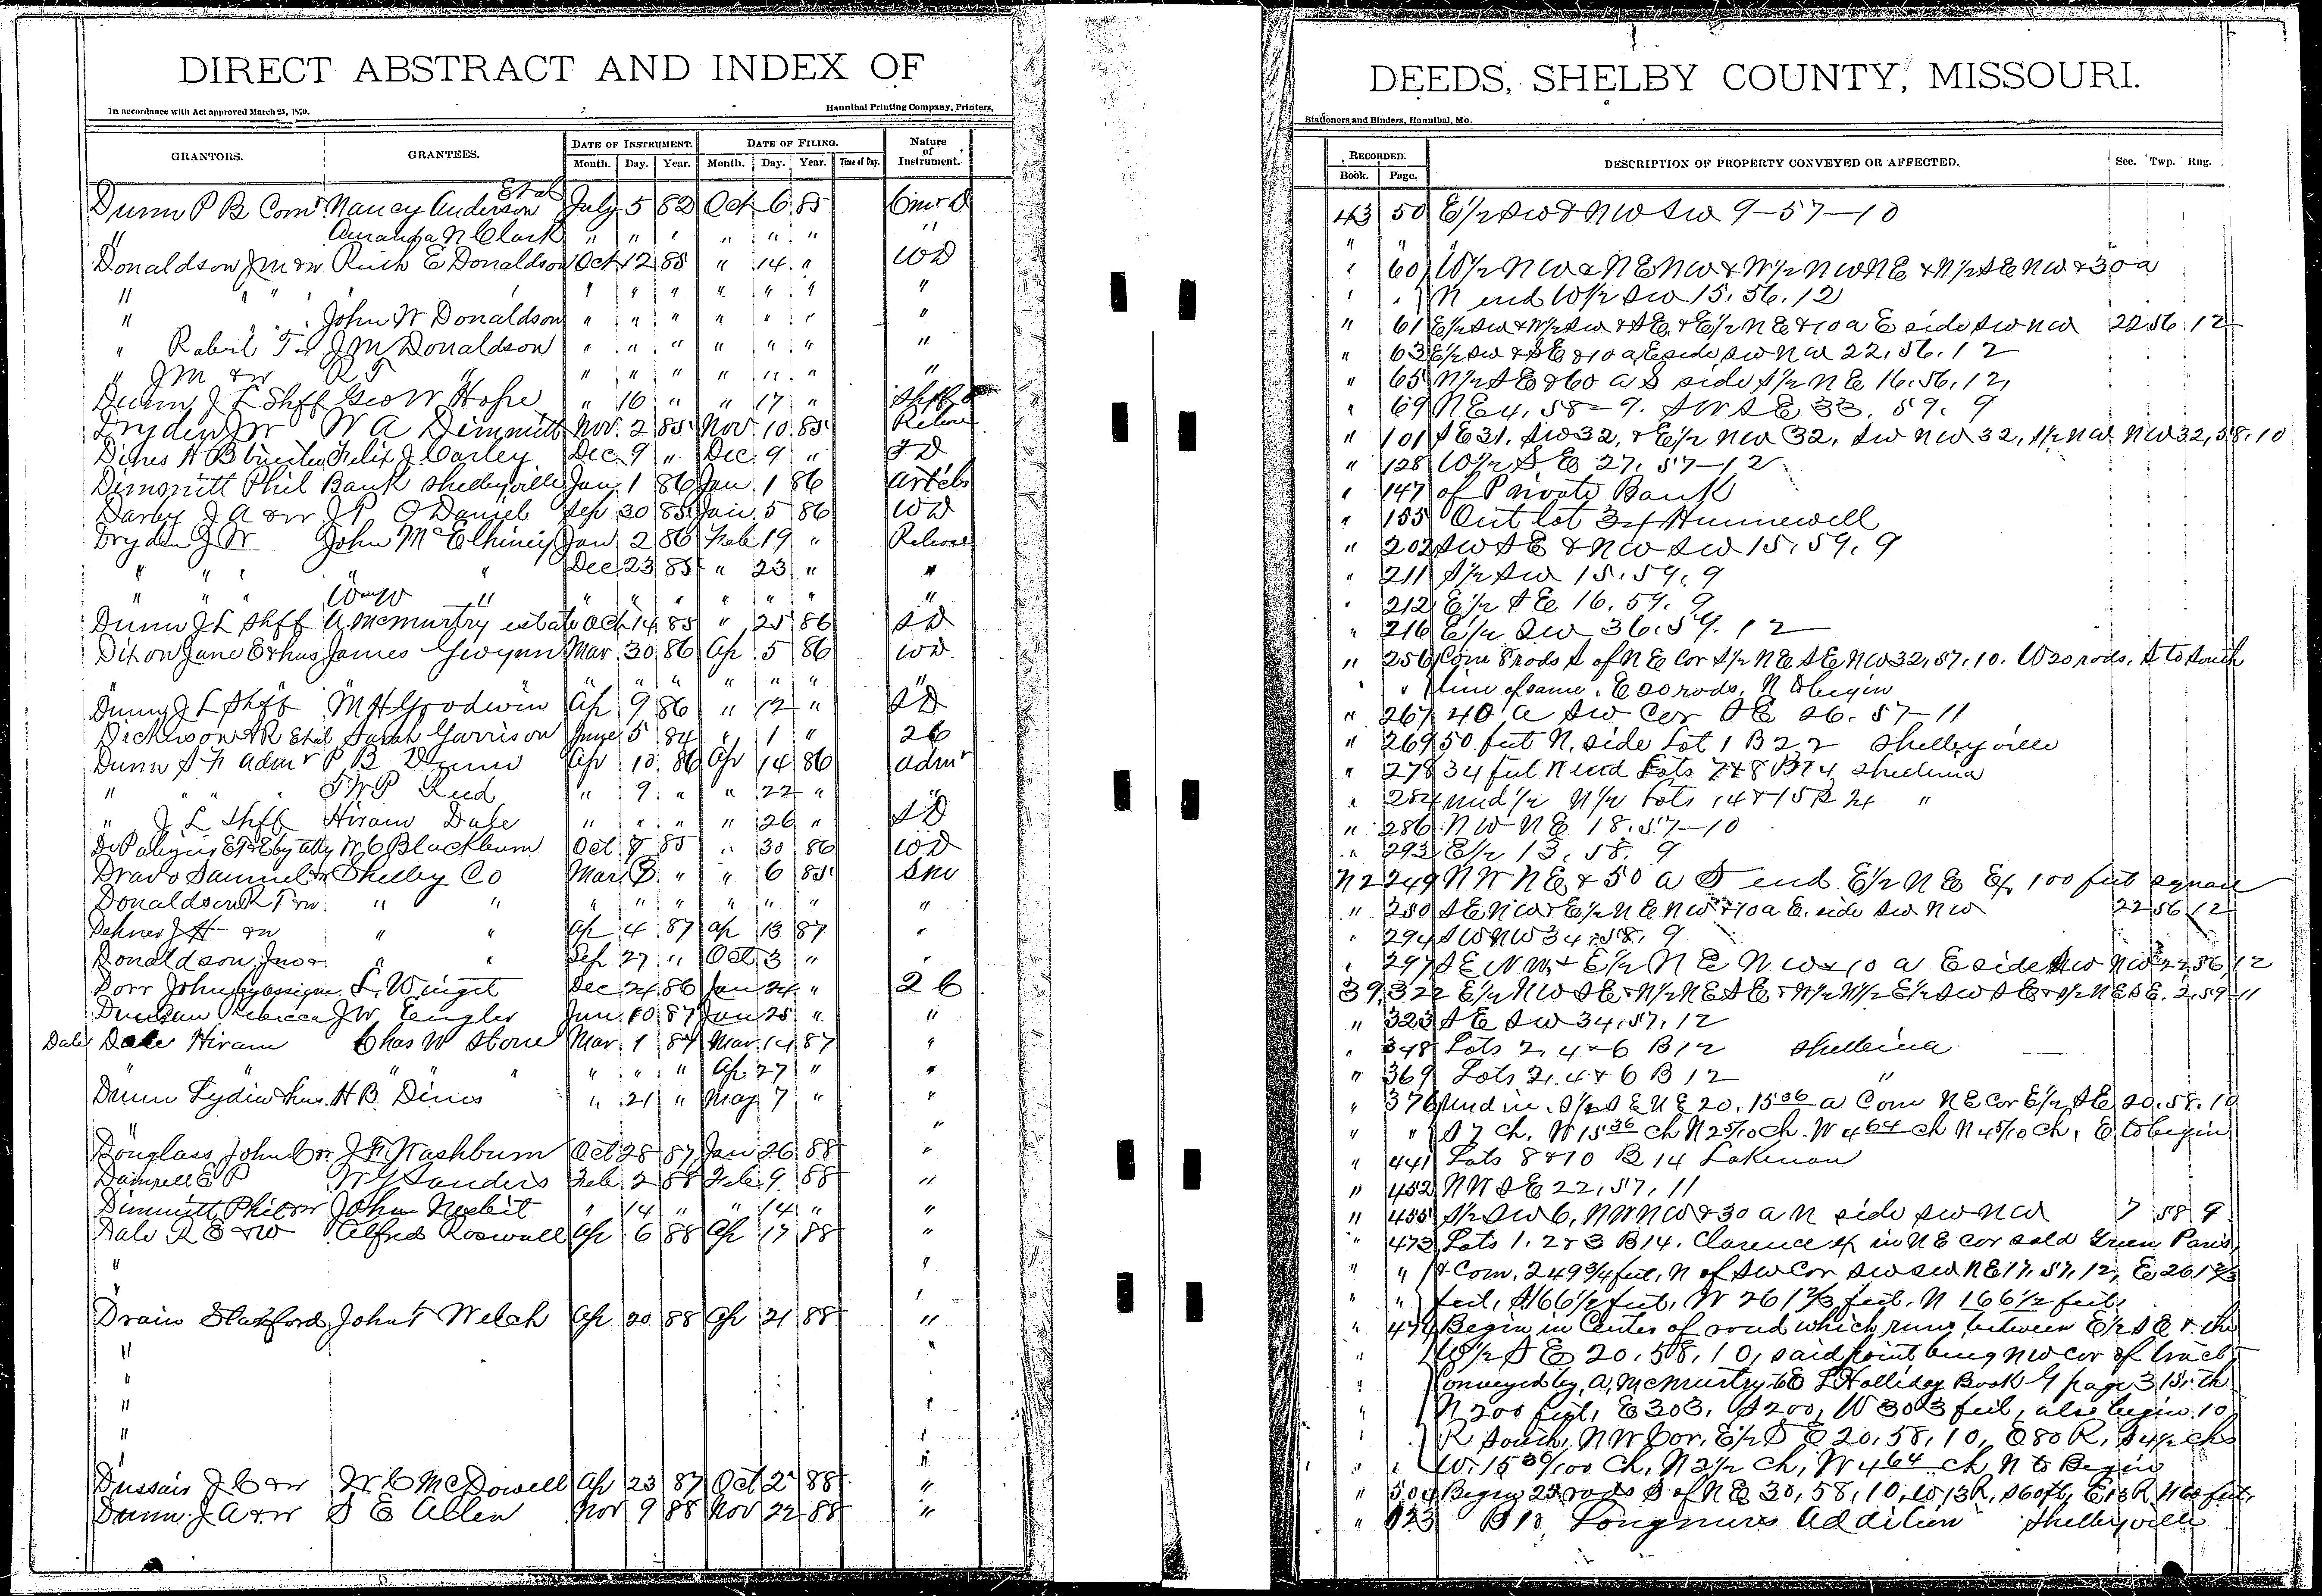 DIRECT ABSTRACT AND INDEX OF
In accordance with Act approved March 25, 1870.
Hannibal Printing Company, Printers,
GRANTORS. GRANTEES. DATE OF INSTRUMENT. DATE OF FILING. Nature of Instrument.
Month. Day. Year. Month. Day. Year. Time of Day.
Et al
Dunn P B Comr Nancy Anderson July 5 82 Oct 6 85 Comr D
" Amanda N Clark " " " " " " "
Donaldson J M & w Ruth E Donaldson Oct 12 85 " 14 " WD
" " " " " " " " " "
" " John W Donaldson " " " " " " "
" Robert T & w J M Donaldson " " " " " " "
" J M & w R T " " " " " " " "
Dunn J L Shff Geo W Hope " 16 " " 17 " Shff D
Dryden J W W A Dimmitt Nov. 2 85 Nov. 10 85 Release
Dines H B trustee Felix J Carley Dec. 9 " Dec. 9 " TD
Dimmitt Phil Bank Shelbyville Jan. 1 86 Jan. 1 86
Darby J A & w J P O Daniel Sep 30 85 Jan. 5 86 WD
Dryden J W John McElhiney Jan. 2 86 Feb 19 " Release
" " " " Dec 23 85 " 23 " "
" " " Wm W " " " " " " " "
Dunn J L Shff A McMurtry estate Oct 14 85 " 25 86 SD
Dixon Jane E & hus James Gwynn Mar. 30 86 Ap 5 86 WD
" " " " " " " "
Dunn J L Shff M H Goodwin Ap 9 86 " 12 " SD
Dickinson A R Et al Sarah Garrison June 5 84 " 1 " 26
Dunn S F admr P B Dunn Ap 10 86 Ap 14 86 admr
" " " T W P Reed " 9 " " 22 " "
" J L Shff Hiram Dale " " " " 26 " SD
W C Blackburn Oct 8 85 " 30 86 WD
Dravo Samuel & w Shelby Co Mar 3 " " 6 85
Donaldson R T & w " " " " " " " " "
Dehner J H & w " " Ap 4 87 Ap 13 87 "
Donaldson Jno & " " Sep 27 " Oct 3 " "
Dorr John by assignee L. Winget Dec 24 86 Jan 24 " 26
Duncan Rebecca J W. Engler Jan 10 87 Jan 25 " "
Dale Dale Hiram Chas W Stone Mar 1 87 Mar. 14 87 "
" " " " " " Ap 27 " "
Dunn Lydia & hus. H B. Dines " 21 " May 7 " "
" "
Douglass John C & w. J F Washburn Oct 28 87 Jan 26 88 "
Damrell E P W Y Sanders Feb 2 88 Feb 9 88 "
Dimmitt Phil & w John Nesbit " 14 " " 14 " "
Dale R E & W Alfred Roswell Ap 6 88 Ap 17 88 "
" "
" "
Drain Stafford John F Welch Ap 20 88 Ap 21 88 "
" "
" "
" "
" "
"
Dussair J C & w W C McDowell Ap 23 87 Oct 2 88 "
Dunn J A & w S E Allen Nov 9 88 Nov 22 88 "
DEEDS, SHELBY COUNTY, MISSOURI.
Stationers and Binders, Hannibal, Mo.
RECORDED. DESCRIPTION OF PROPERTY CONVEYED OR AFFECTED. Sec. Twp. Rng.
Book. Page.
43 50 E½ SW & NW SW 9-57-10
" "
" 60 W½ NW & NE NW & W½ NW NE & N½ SE NW & 30 a
" " N end W½ SW 15. 56. 12
" 61 E½ SW & W½ SW & SE & E½ NE & 10 a E side SW NW 22 56 12
" 63 E½ SW & SE & 10 a E side SW NW 22. 56. 12
" 65 N½ SE & 60 a S side S½ NE 16. 56. 12,
" 69 NE 4. 58-9. SW SE 33. 59. 9
" 101 SE 31. SW 32, & E½ NW 32, SW NW 32, S½ NW NW 32, 58. 10
" 128 W½ SE 27. 57-12
" 147 of Private Bank
" 155 Out lot 34 Hunnewell
" 202 SW SE & NW SW 15. 59. 9
" 211 S½ SW 15. 59. 9
" 212 E½ SE 16. 59. 9
" 216 E½ SW 36. 59. 12
" 256 Com 8 rods S of NE Cor S½ NE SE NW 32, 57. 10. W 20 rods, S to South
" line of same. E 20 rods. N to begin
" 267 40 a SW Cor SE 26. 57-11
" 269 50 feet N. side Lot 1 B 22 Shelbyville
" 278 34 feet N end Lots 7 & 8 B 74 Shelbina
" 284 und ½ N½ Lots 14 & 15 B 24 "
" 286 NW NE 18. 57-10
" 293 E½ 13. 58. 9
N2 249 NW NE & 50 a S end E½ NE Ex 100 feet square
" 250 SE NW & E½ NE NW & 10 a E. side SW NW 22 56 12
" 294 SW NW 34. 58. 9
" 297 SE NW. & E½ NE NW & 10 a E side SW NW 22 56 12
39 322 E½ NW SE & N½ NE SE & W½ W½ E½ SW SE & S½ NE SE. 2. 59-11
" 323 SE SW 34. 57. 12
" 348 Lots 2, 4 & 6 B 12 Shelbina
" 369 Lots 2. 4 & 6 B 12 "
" 376 Und int. S½ SE NE 20. 15 36 a Com NE Cor E½ SE 20. 58. 10
" " S 7 ch. W 15 36 ch N 2 5/10 ch. W 4 64 ch N 4 5/10 ch, E. to begin
" 441 Lots 8 & 10 B 14 Lakenan
" 452 NW SE 22, 57. 11
" 455 S½ SW 6, NW NW & 30 a N side SW NW 7 58 9
" 473 Lots 1. 2 & 3 B 14. Clarence Ex in NE cor sold Green Paris,
" " & Com. 249 3/4 feet, N of SW Cor SW SW NE 17. 57. 12, E 261 2/3
" " feet, S 166 1/2 feet, W 261 2/3 feet. N 166 1/2 feet,
" 474 Begin in Center of road which runs between E½ SE & the
" W½ SE 20. 58. 10, said point being NW cor of tract
" Conveyed by A. McMurtry to E L Holliday Book G page 315, th
" N 200 feet, E 303, S 200, W 303 feet, also begin 10
R South, NW Cor, E½ SE 20, 58, 10, E 80 R, S 4½ chs
" W. 15 36/100 Ch, N 2½ Ch, W 4 64 ch N to Begin
" 504 Begin 23 rods S of NE 30, 58, 10, W 13 R, S 60 ft, E 13 R N 60 feet,
" 523 B 18 Longmires Addition Shelbyville